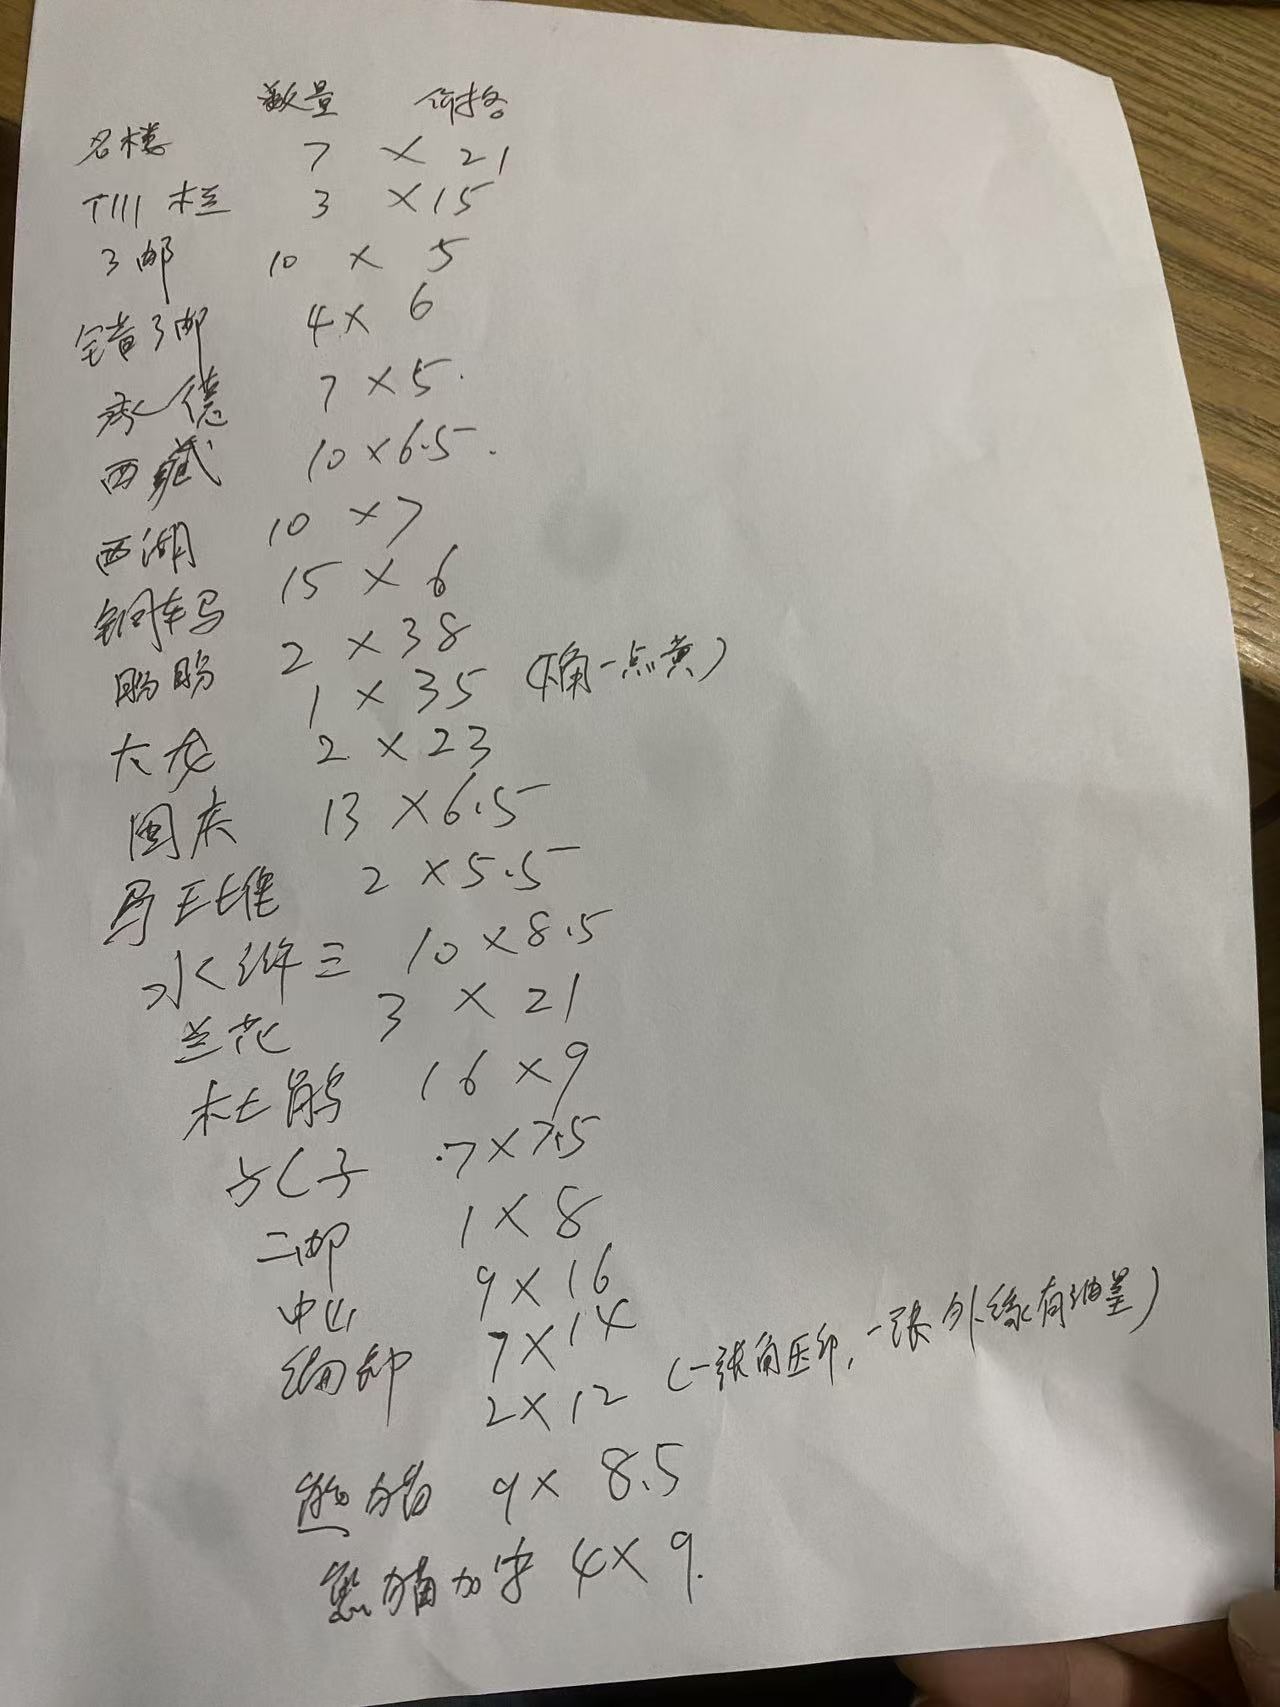 数量 价格
名楼 7 × 21
T111 栏 3 × 15
3邮 10 × 5
错3邮 4 × 6
承德 7 × 5.
西藏 10 × 6.5.
西湖 10 × 7
铜车马 15 × 6
盼盼 2 × 38
1 × 35 (下角一点黄)
大龙 2 × 23
国庆 13 × 6.5
马王堆 2 × 5.5
水浒三 10 × 8.5
兰花 3 × 21
杜鹃 16 × 9
孔子 7 × 7.5
二邮 1 × 8
中山 9 × 16
绸邮 7 × 14
2 × 12 (一张角压印,一张外缘有油墨)
熊猫 9 × 8.5
熊猫加字 4 × 9.